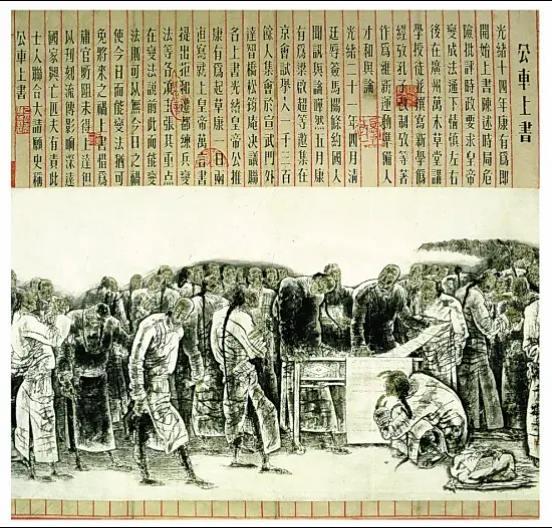 公車上書
光緒十四年康有為即
開始上書陳述時局危
險批評時政要求皇帝
變成法通下情慎左右
後在廣州萬木草堂講
學授徒並撰寫新學偽
經攷孔子改制攷等著
作為維新運動準備人
才和輿論
光緒二十一年四月清
廷將簽馬關條約國人
聞訊輿論嘩然五月康
有為梁啟超等邀集在
京會試舉人一千三百
餘人集會於宣武門外
達智橋松筠庵決議聯
名上書光緒皇帝公推
康有為起草康日兩
夜寫就上皇帝萬言書
提出拒和遷都練兵變
法等各項主張其重點
在變法認前此而能變
法則可以無今日之禍
使今日而能變法猶可
免將來之禍上書惜為
官所阻未得上達但
以刊刻流傳影響深遠
國家興亡匹夫有責此
士人聯合大請願史稱
公車上書